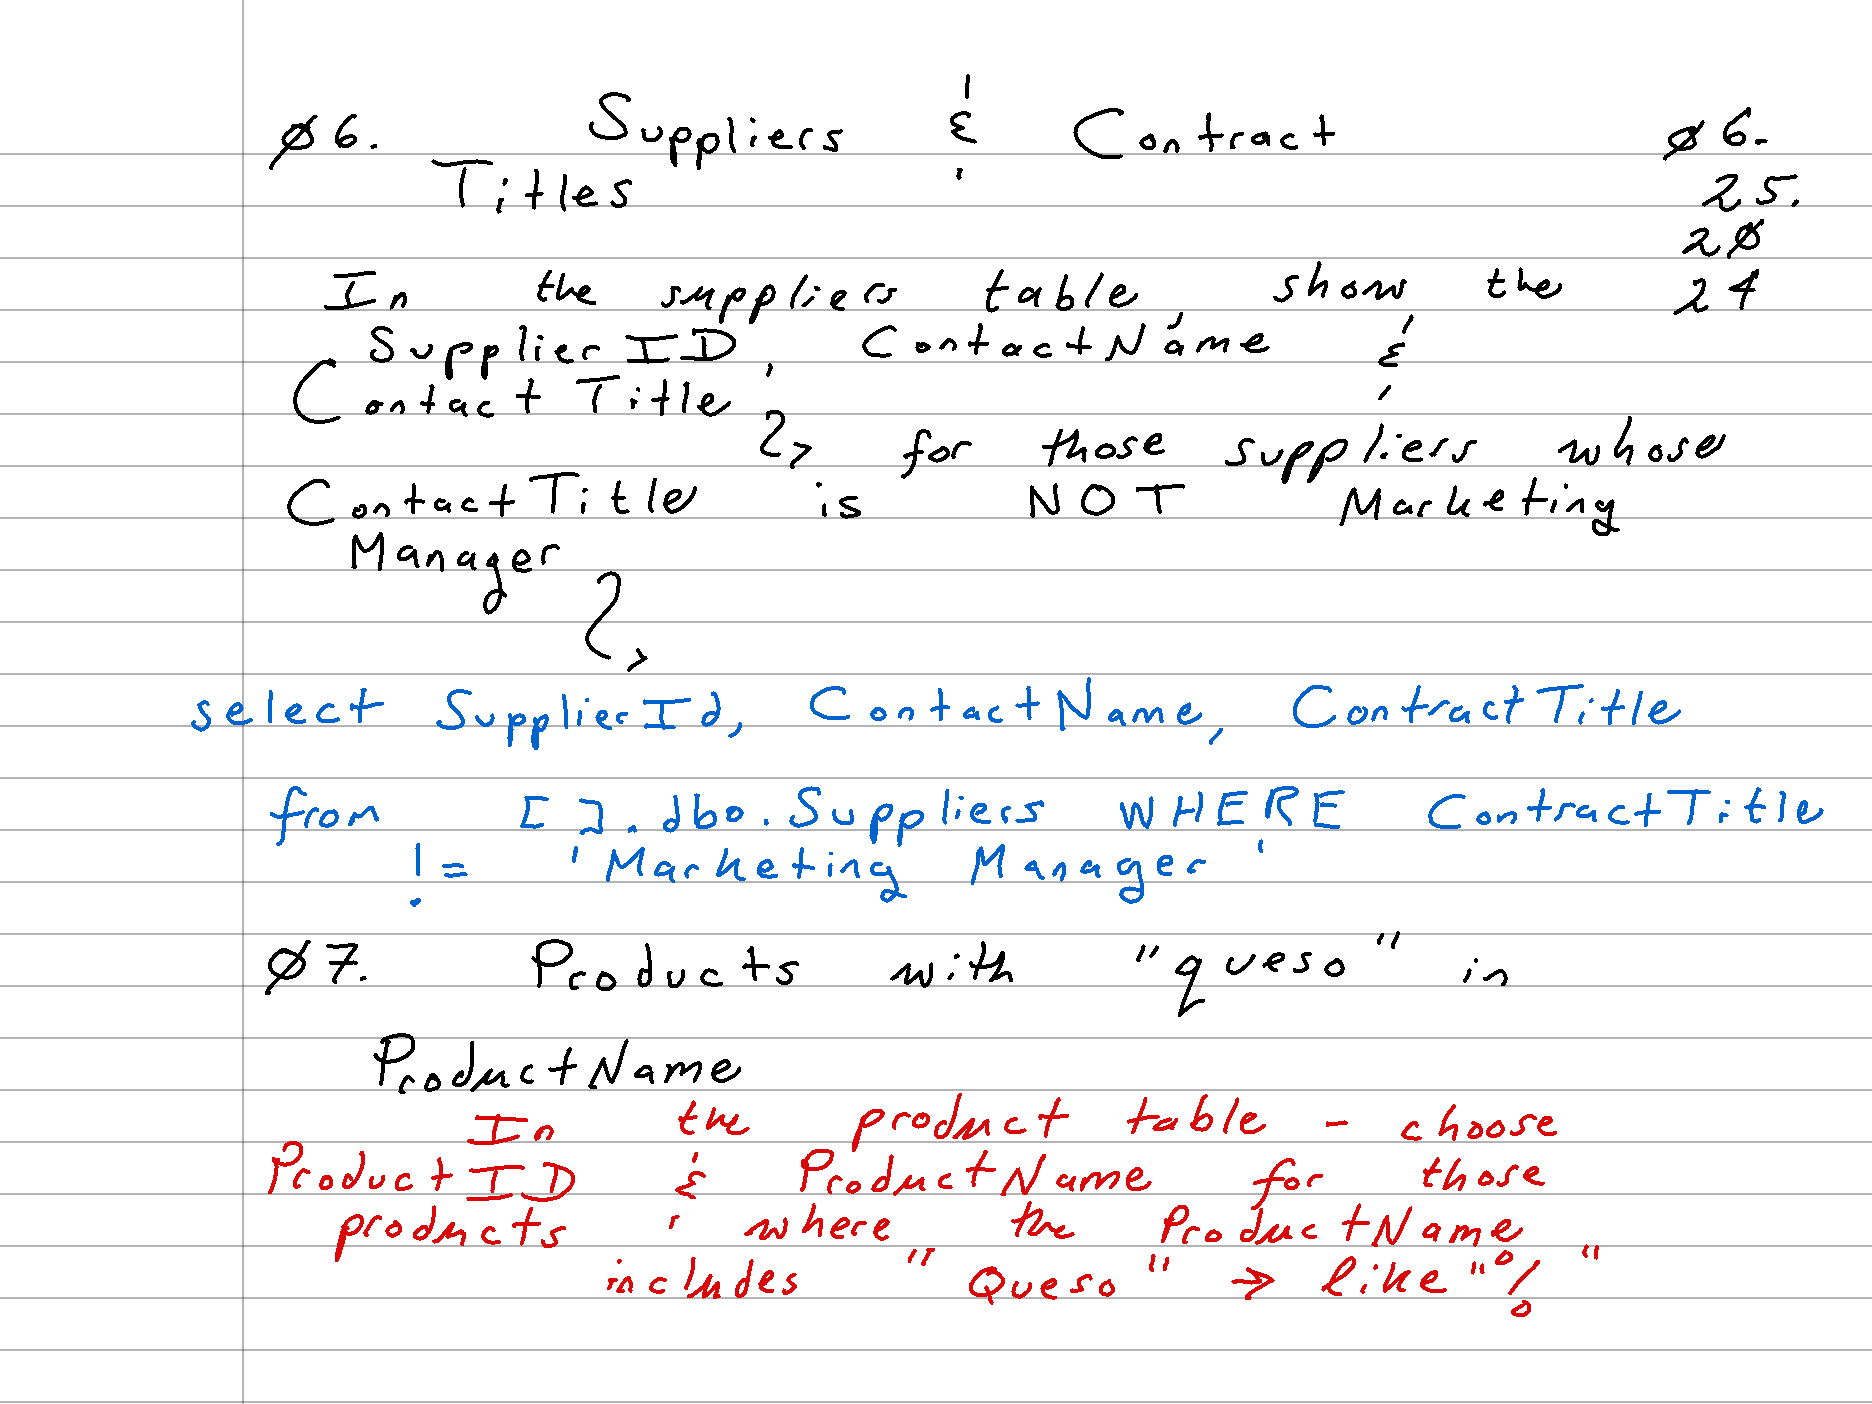 Ø6. Suppliers & Contract Ø6.
Titles 25.
2Ø
In the suppliers table, show the 24
SupplierID, ContactName &
ContactTitle
for those suppliers whose
ContactTitle is NOT Marketing
Manager
select SupplierId, ContactName, ContractTitle
from [ ].dbo.Suppliers WHERE ContractTitle
!= 'Marketing Manager'
Ø7. Products with "queso" in
ProductName
In the product table - choose
ProductID & ProductName for those
products where the ProductName
includes "Queso" → like "%"